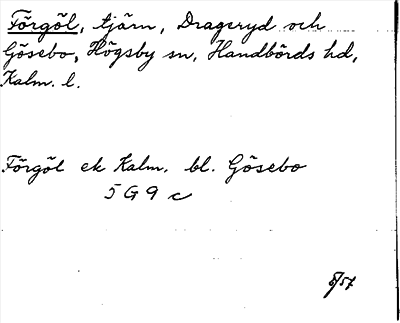 Förgöl, tjärn, Drageryd och
Gösebo, Högsby sn, Handbörds hd,
Kalm. l.
Förgöl ek Kalm. bl. Gösebo
5 G 9 c
8/57